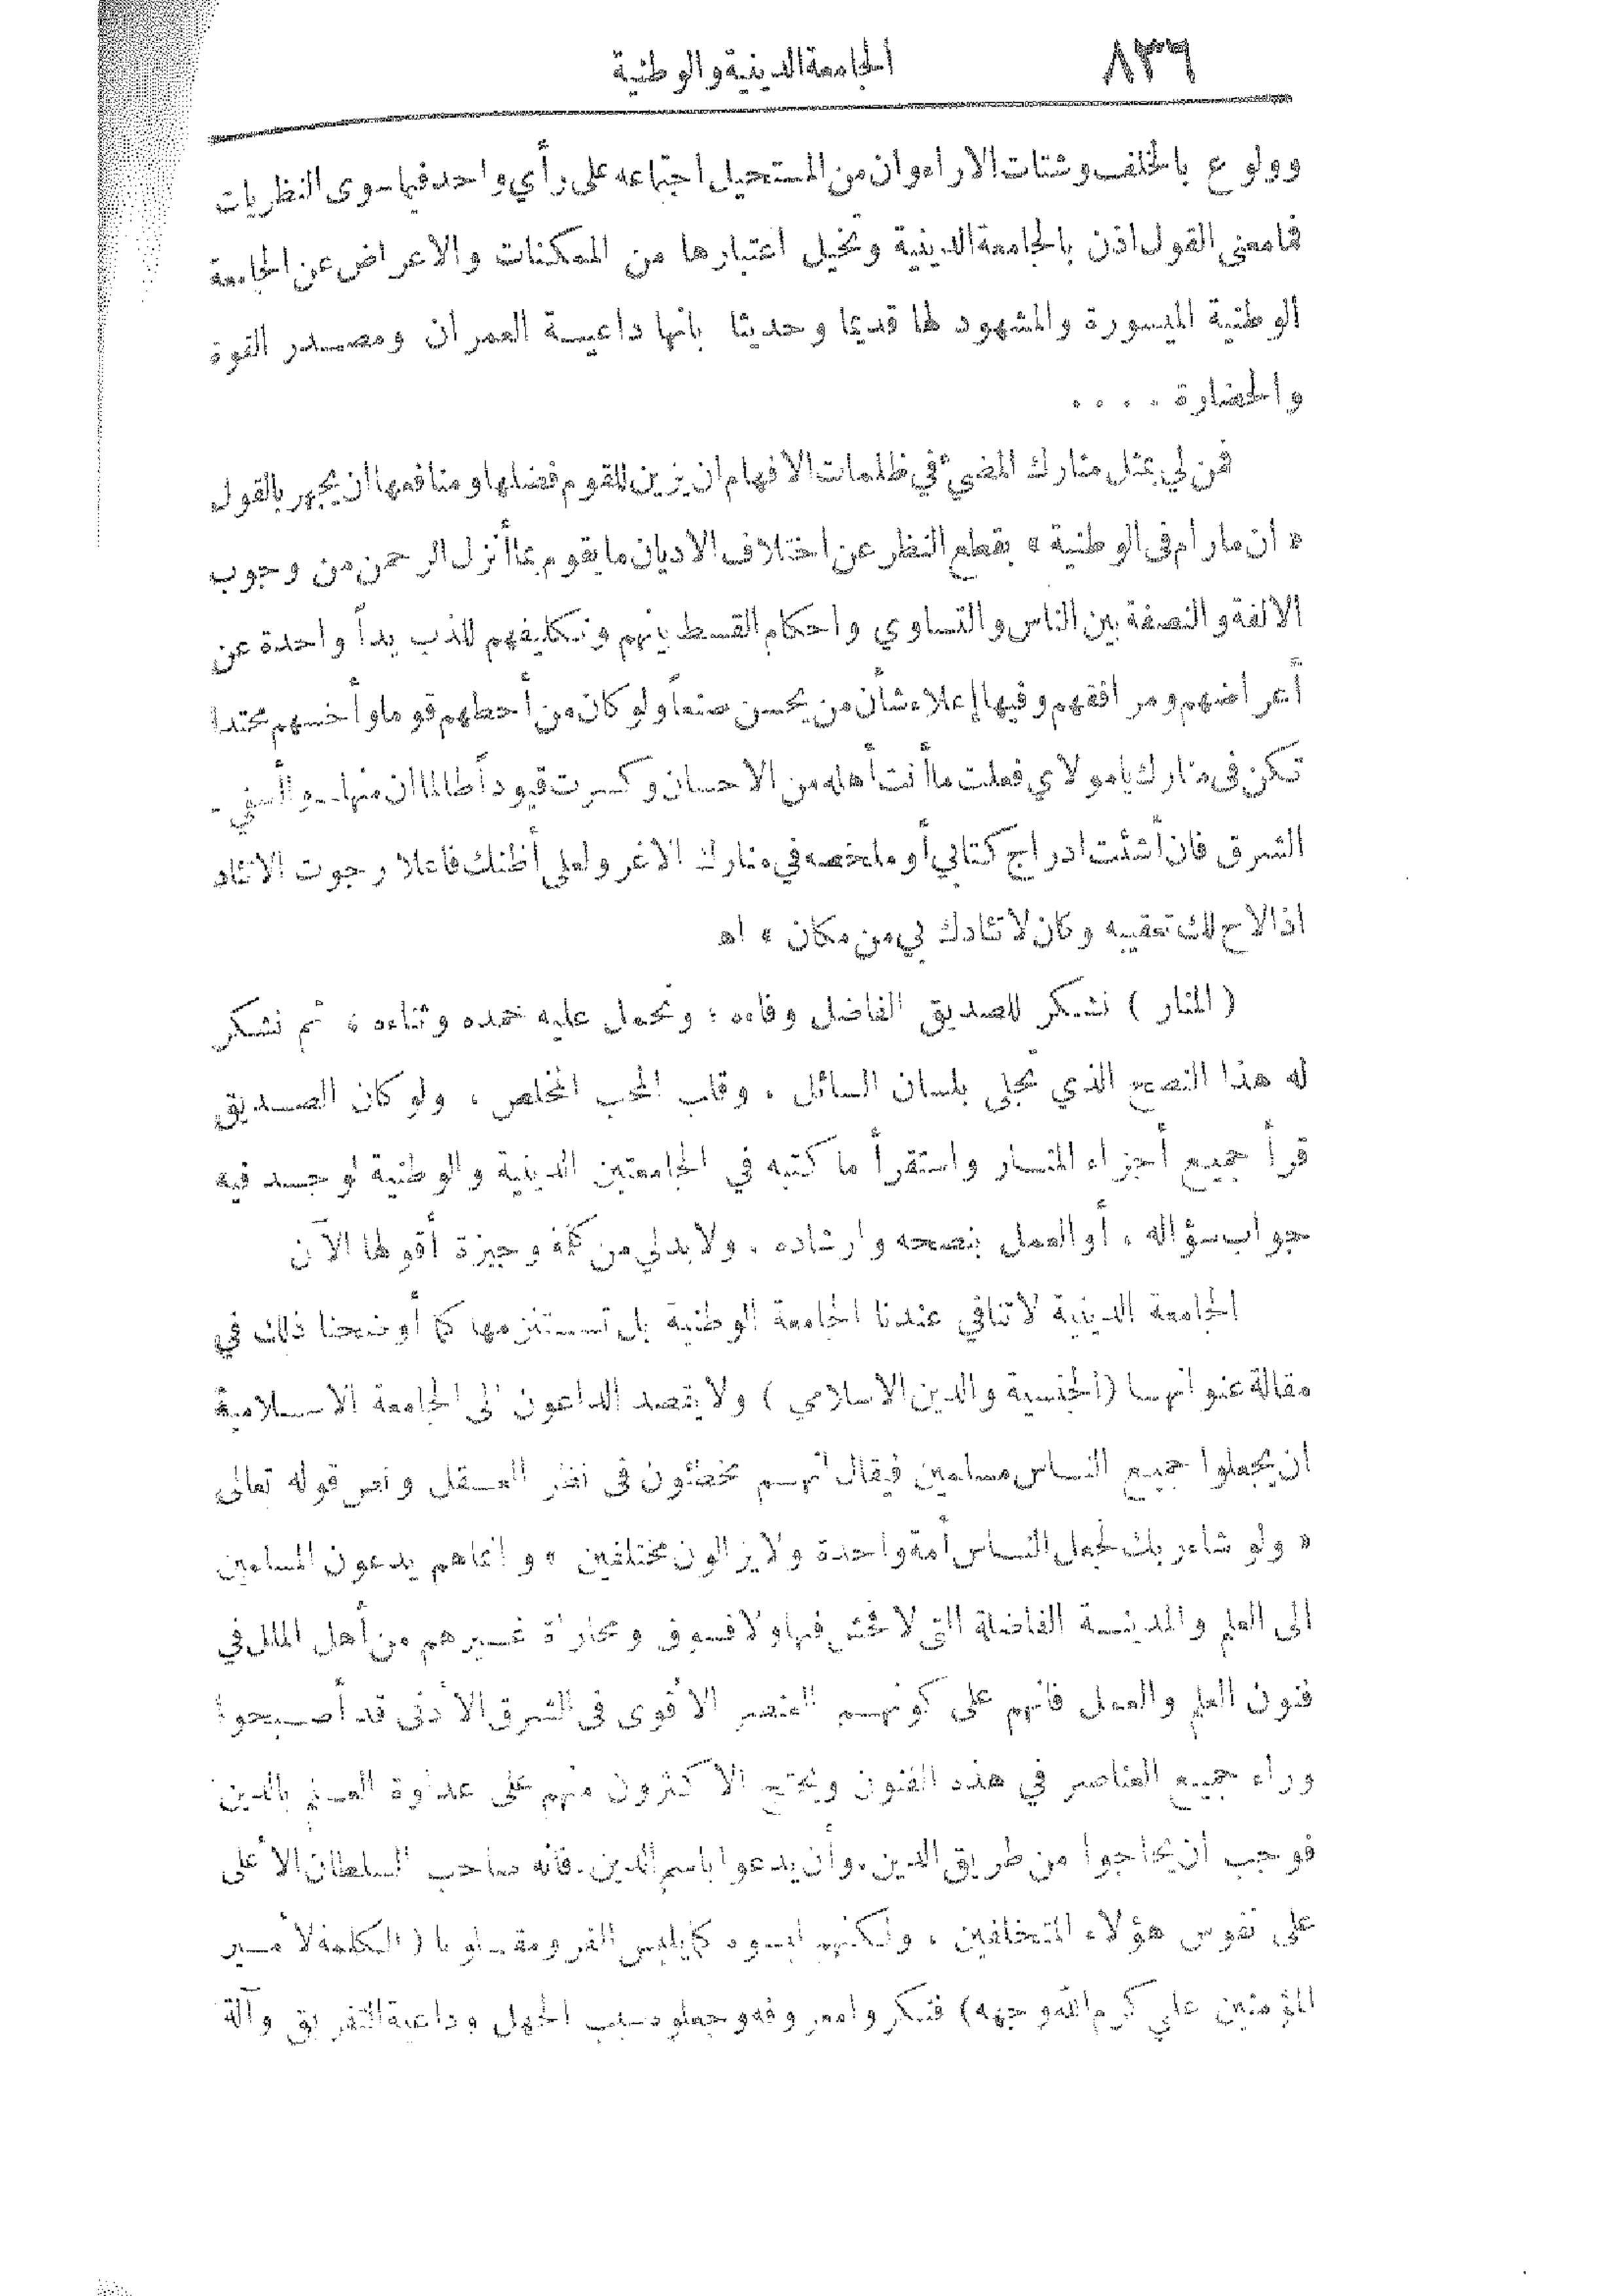 ٨٣٦
الجامعة الدينية والوطنية
وولوع بالخلف وشتات الاراء وان من المستحيل اجتماعه على رأي واحد فيما سوى النظريات
فما معنى القول اذن بالجامعة الدينية وتخيل اعتبارها من الممكنات والاعراض عن الجامعة
الوطنية الميسورة والمشهود لها قديما وحديثا بانها داعية العمران ومصدر القوة
والحضارة ....
فمن لي بمثل منارك المضيء في ظلمات الافهام ان يزين للقوم فضلها ومنافعها ان يجهر بالقول
« ان مارام فى الوطنية » بقطع النظر عن اختلاف الاديان ما يقوم بما أنزل الرحمن من وجوب
الالفة والنصفة بين الناس والتساوي واحكام القسط بينهم وتكليفهم للذب يداً واحدة عن
أعراضهم ومرافقهم وفيها إعلاء شأن من يحسن صنعاً ولو كان من أحطهم قوما وأخسهم محتدا
تكن فى منارك يا مولاي فعلت ما أنت أهله من الاحسان وكسرت قيوداً طالما ان منها
الشرق فان شئت ادراج كتابي أو ملخصه في منارك الاغر ولعلي أظنك فاعلا رجوت الاتئاد
اذا لاح لك تعقيبه وكان لاتئادك بي من مكان » اه
( المنار ) نشكر للصديق الفاضل وفاءه ؛ ونحمل عليه حمده وثناءه ؛ ثم نشكر
له هذا النصح الذي تجلى بلسان السائل ، وقلب المحب المخلص ، ولو كان الصديق
قرأ جميع أجزاء المنار واستقرأ ما كتبه في الجامعتين الدينية والوطنية لوجد فيه
جواب سؤاله ، أو العمل بنصحه وارشاده . ولا بد لي من كلمة وجيزة أقولها الآن
الجامعة الدينية لا تنافي عندنا الجامعة الوطنية بل تستلزمها كما أوضحنا ذلك في
مقالة عنوانها (الجنسية والدين الاسلامي ) ولا يقصد الداعون الى الجامعة الاسلامية
ان يجعلوا جميع الناس مسلمين فيقال انهم مخطئون فى نظر العقل ونص قوله تعالى
« ولو شاء ربك لجعل الناس أمة واحدة ولا يزالون مختلفين » وانما هم يدعون المسلمين
الى العلم والمدنية الفاضلة التي لا فحش فيها ولا فسوق ومجاراة غيرهم من أهل الملل في
فنون العلم والعمل فانهم على كونهم العنصر الاقوى فى الشرق الادنى قد أصبحوا
وراء جميع العناصر في هذه الفنون ويحتج الاكثرون منهم على عداوة العلم بالدين
فوجب ان يحاجوا من طريق الدين . وأن يدعوا باسم الدين . فانه صاحب السلطان الاعلى
على نفوس هؤلاء المتخلفين ، ولكنهم لبسوه كما يلبس الفرو مقلوبا ( الكلمة لامير
المؤمنين علي كرم الله وجهه) فنكروا معروفه وجعلوه سبب الجهل وداعية التفريق وآلة